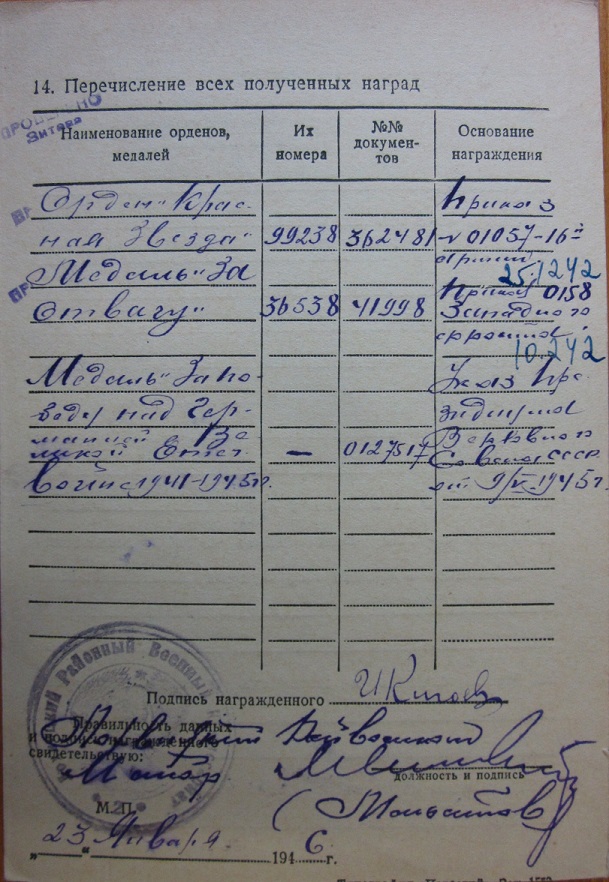 14. Перечисление всех полученных наград
ПРОВЕРЕНО
Наименование орденов, медалей
Их номера
№№ документов
Основание награждения
Орден „Крас-
ная Звезда"
99238
362481
Приказ
№ 01057-16й
армии
25.12 42
Медаль „За
Отвагу"
36538
41998
Приказ 0158
Западного
фронта
10.2 42
Медаль „За по-
беду над Гер-
манией Ве
ликой Отеч
войне 1941-1945 г.
—
0127517
Указ Пре
зидиума
Верховного
Совета СССР
от 9/V-1945 г
Районный Военный
Подпись награжденного
Правильность данных
и подпись награжденного
свидетельствую:
Райвоенком
Майор
должность и подпись
М. П.
„ 23 " Января 1946 г.